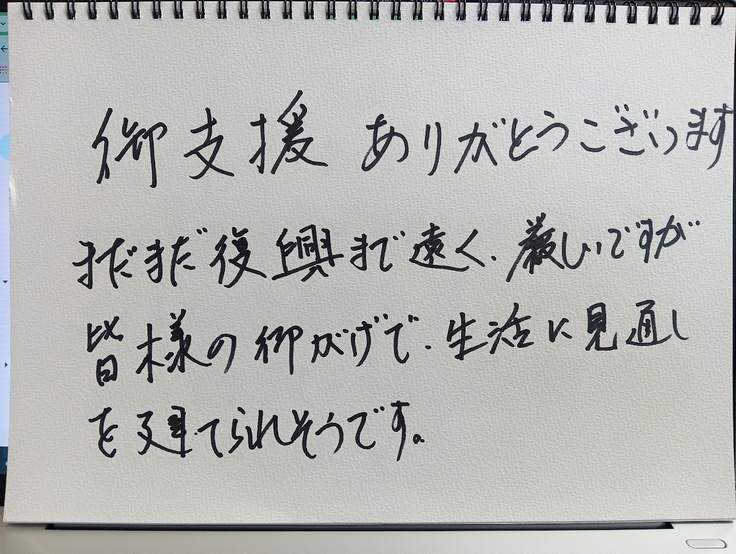 御支援 ありがとうございます
まだまだ復興まで遠く、厳しいですが
皆様の御かげで、生活に見通し
を建てられそうです。